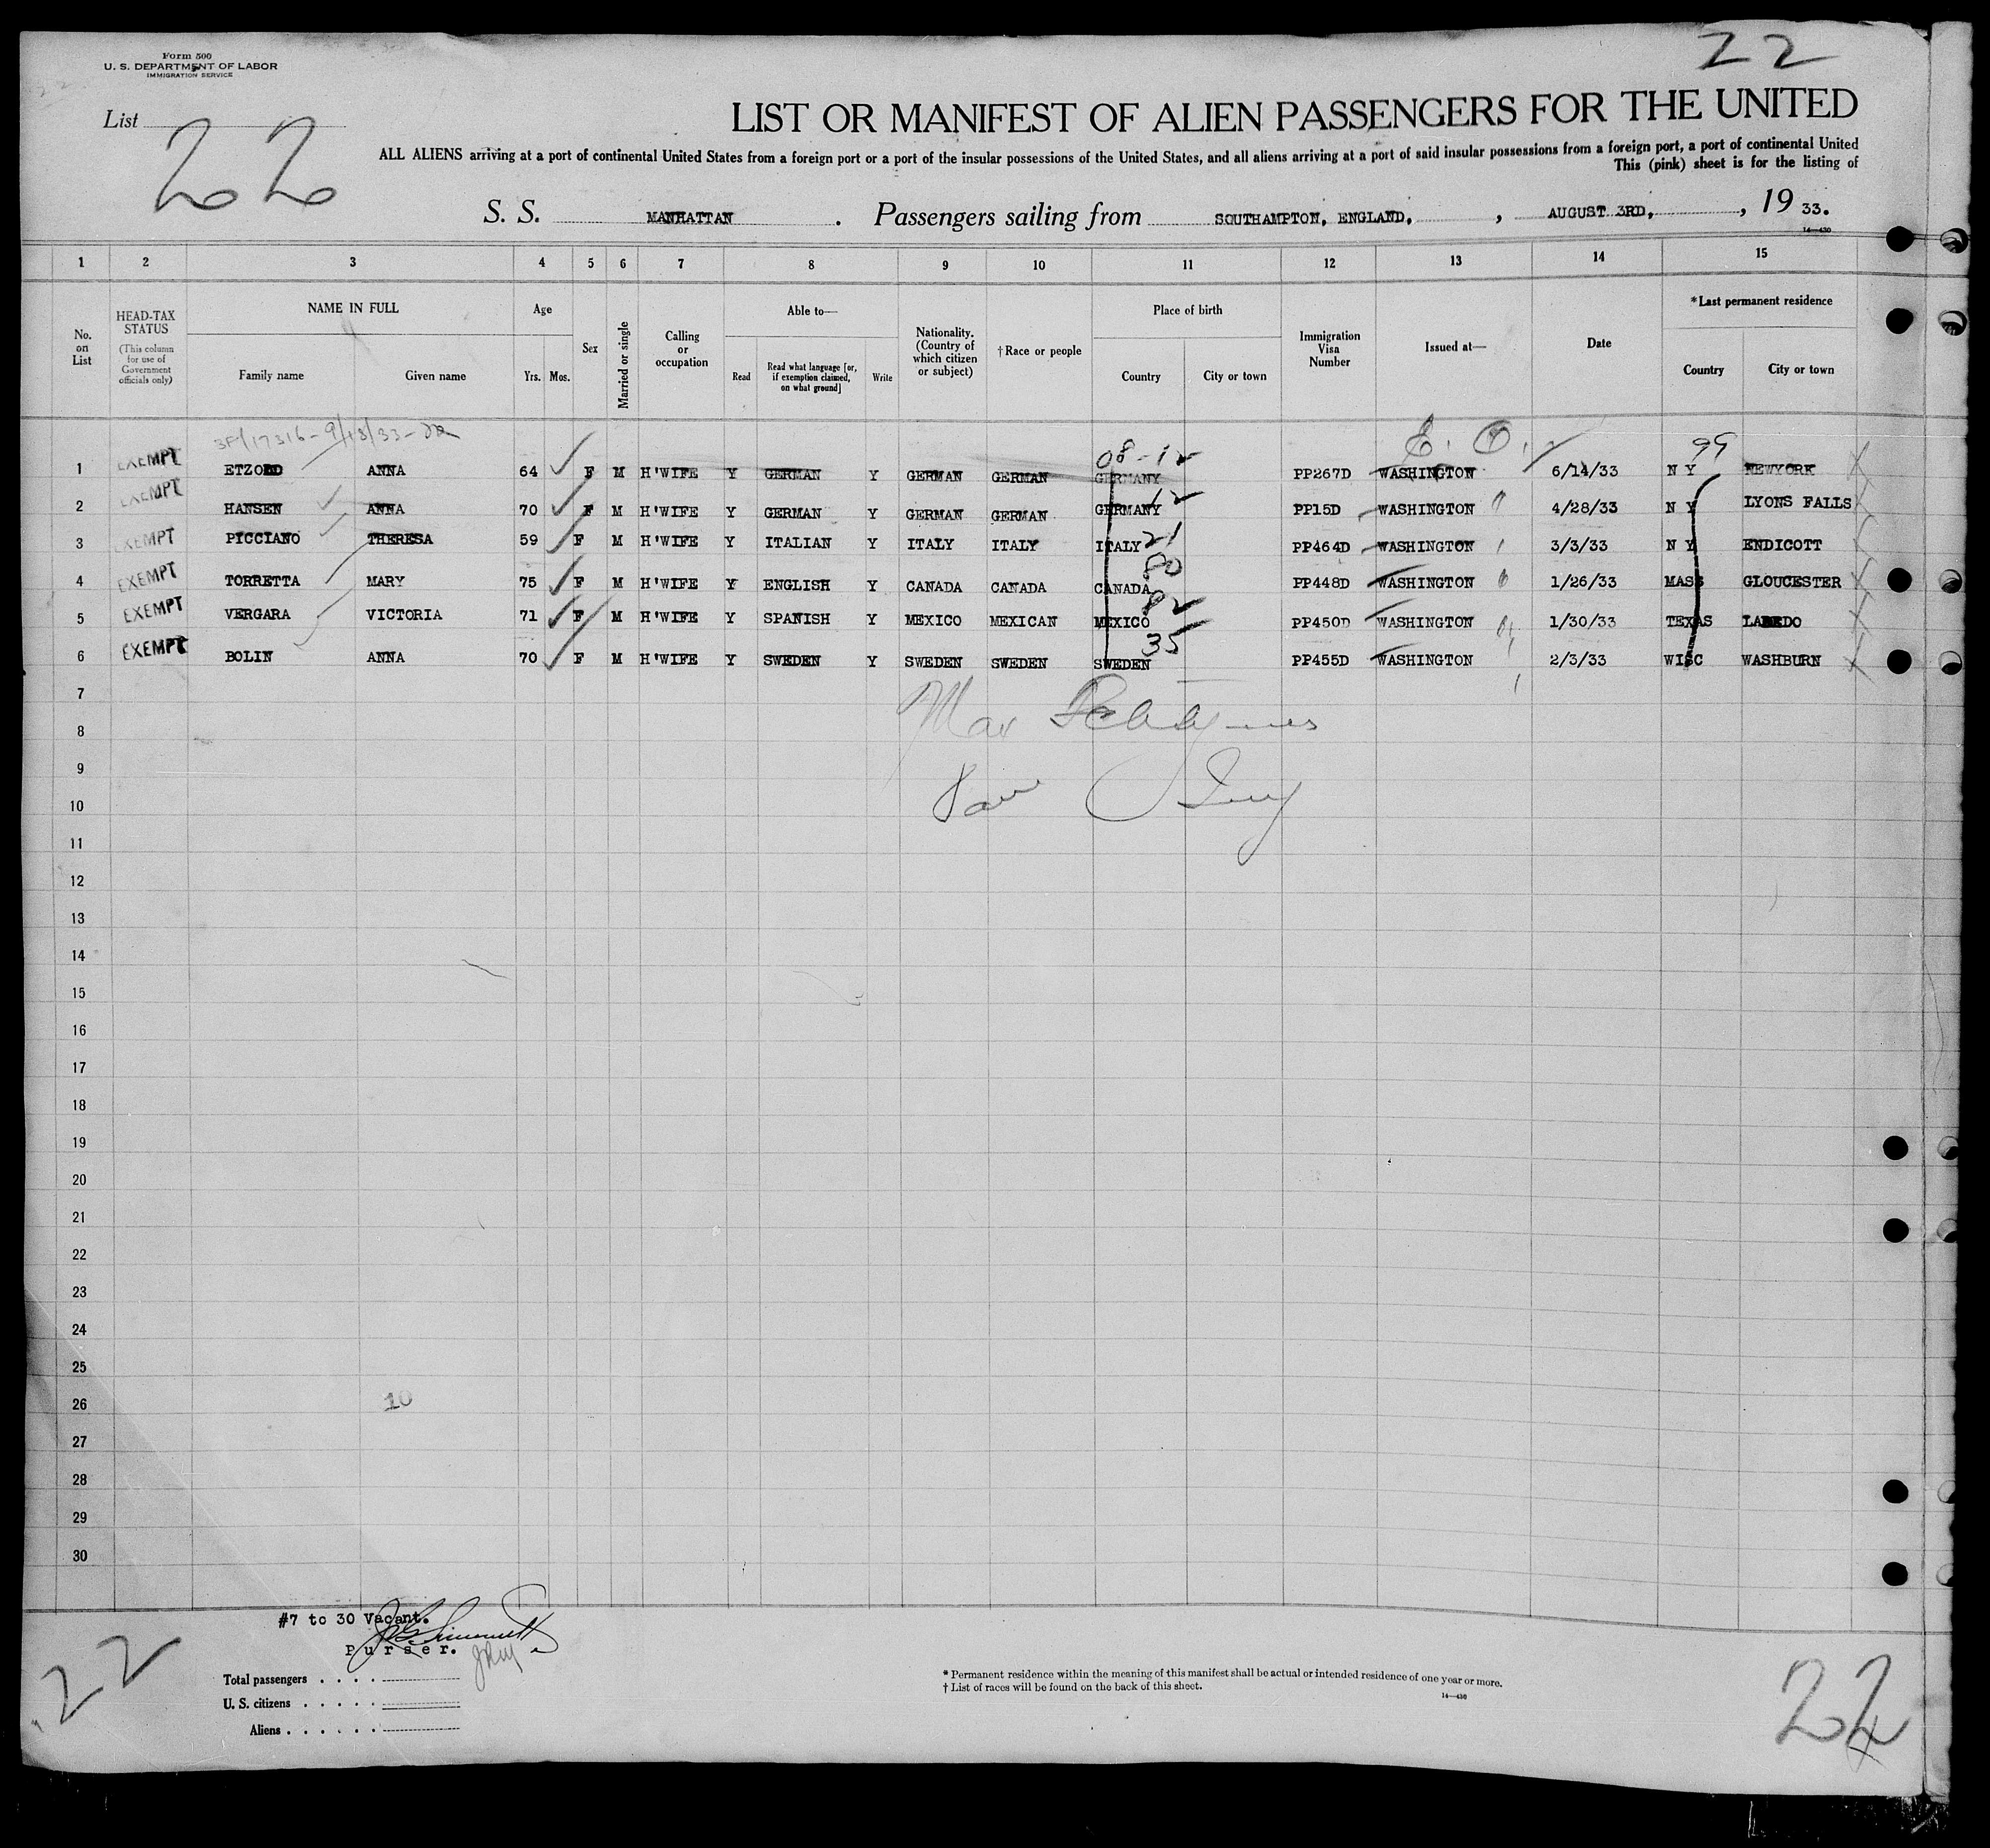 Form 500
U. S. DEPARTMENT OF LABOR
IMMIGRATION SERVICE
22
List 22
LIST OR MANIFEST OF ALIEN PASSENGERS FOR THE UNITED
ALL ALIENS arriving at a port of continental United States from a foreign port or a port of the insular possessions of the United States, and all aliens arriving at a port of said insular possessions from a foreign port, a port of continental United
This (pink) sheet is for the listing of
S. S. MANHATTAN . Passengers sailing from SOUTHAMPTON, ENGLAND, , AUGUST 3RD, , 19 33.
14—430
1 2 3 4 5 6 7 8 9 10 11 12 13 14 15
No. on List
HEAD-TAX STATUS
(This column for use of Government officials only)
NAME IN FULL
Family name Given name
Age
Yrs. Mos.
Sex
Married or single
Calling or occupation
Able to—
Read
Read what language [or, if exemption claimed, on what ground]
Write
Nationality. (Country of which citizen or subject)
†Race or people
Place of birth
Country City or town
Immigration Visa Number
Issued at—
Date
*Last permanent residence
Country City or town
3F/17316-9/13/33- 08-12 E. O. 99
1 EXEMPT ETZOLD ANNA 64 F M H'WIFE Y GERMAN Y GERMAN GERMAN GERMANY PP267D WASHINGTON 6/14/33 N Y NEWYORK
2 EXEMPT HANSEN ANNA 70 F M H'WIFE Y GERMAN Y GERMAN GERMAN GERMANY 12 PP15D WASHINGTON 4/28/33 N Y LYONS FALLS
3 EXEMPT PICCIANO THERESA 59 F M H'WIFE Y ITALIAN Y ITALY ITALY ITALY 21 PP464D WASHINGTON 3/3/33 N Y ENDICOTT
4 EXEMPT TORRETTA MARY 75 F M H'WIFE Y ENGLISH Y CANADA CANADA CANADA 80 PP448D WASHINGTON 1/26/33 MASS GLOUCESTER
5 EXEMPT VERGARA VICTORIA 71 F M H'WIFE Y SPANISH Y MEXICO MEXICAN MEXICO 82 PP450D WASHINGTON 1/30/33 TEXAS LAREDO
6 EXEMPT BOLIN ANNA 70 F M H'WIFE Y SWEDEN Y SWEDEN SWEDEN SWEDEN 35 PP455D WASHINGTON 2/3/33 WISC WASHBURN
7
8
9
10
11
12
13
14
15
16
17
18
19
20
21
22
23
24
25
26 10
27
28
29
30
#7 to 30 Vacant.
Purser.
22
Total passengers
U. S. citizens
Aliens
* Permanent residence within the meaning of this manifest shall be actual or intended residence of one year or more.
† List of races will be found on the back of this sheet.
14—430
22